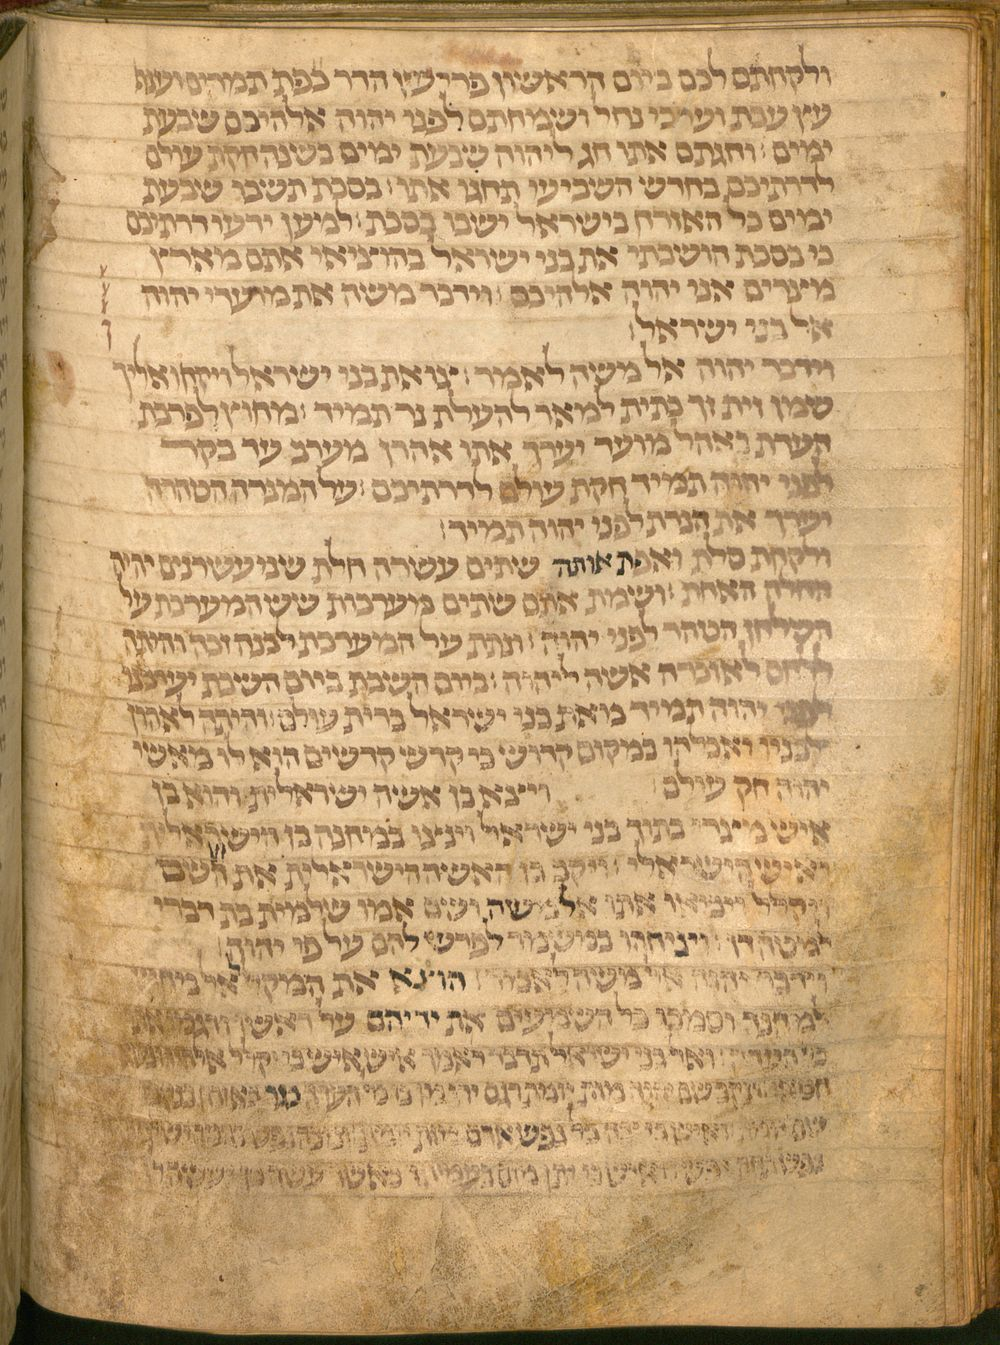 ולקחתם לכם ביום הראשון פרי עץ הדר כפת תמרים וענף
עץ עבת וערבי נחל ושמחתם לפני יהוה אלהיכם שבעת
ימים : וחגתם אתו חג ליהוה שבעת ימים בשנה חקת עולם
לדרתיכם בחדש השביעי תחגו אתו : בסכת תשבו שבעת
ימים כל האזרח בישראל ישבו בסכת : למען ידעו דרתיכם
כי בסכת הושבתי את בני ישראל בהוציאי אתם מארץ
מצרים אני יהוה אלהיכם : וידבר משה את מועדי יהוה
אל בני ישראל :
וידבר יהוה אל משה לאמר : צו את בני ישראל ויקחו אליך
שמן זית זך כתית למאר להעלת נר תמיד : מחוץ לפרכת
העדת באהל מועד יערך אתו אהרן מערב עד בקר
לפני יהוה תמיד חקת עולם לדרתיכם : על המנרה הטהרה
יערך את הנרת לפני יהוה תמיד :
ולקחת סלת ואפית אותה שתים עשרה חלת שני עשרנים יהיה
החלה האחת : ושמת אתם שתים מערכות שש המערכת על
השלחן הטהר לפני יהוה : ונתת על המערכת לבנה זכה והיתה
ללחם לאזכרה אשה ליהוה : ביום השבת ביום השבת יערכנו
לפני יהוה תמיד מאת בני ישראל ברית עולם : והיתה לאהרן
ולבניו ואכלהו במקום קדוש כי קדש קדשים הוא לו מאשי
יהוה חק עולם : ויצא בן אשה ישראלית והוא בן
איש מצרי בתוך בני ישראל וינצו במחנה בן הישראלית
ואיש הישראלי : ויקב בן האשה הישראלית את השם
ויקלל ויביאו אתו אל משה ושם אמו שלמית בת דברי
למטה דן : ויניחהו במשמר לפרש להם על פי יהוה :
וידבר יהוה אל משה לאמר : הוצא את המקלל אל מחוץ
למחנה וסמכו כל השמעים את ידיהם על ראשו ורגמו אתו
כל העדה : ואל בני ישראל תדבר לאמר איש איש כי יקלל אלהיו
ונקב שם יהוה מות יומת רגום ירגמו בו כל העדה כגר כאזרח בנקבו
שם יומת : ואיש כי יכה כל נפש אדם מות יומת
נפש תחת נפש : ואיש כי יתן מום בעמיתו כאשר עשה כן יעשה לו